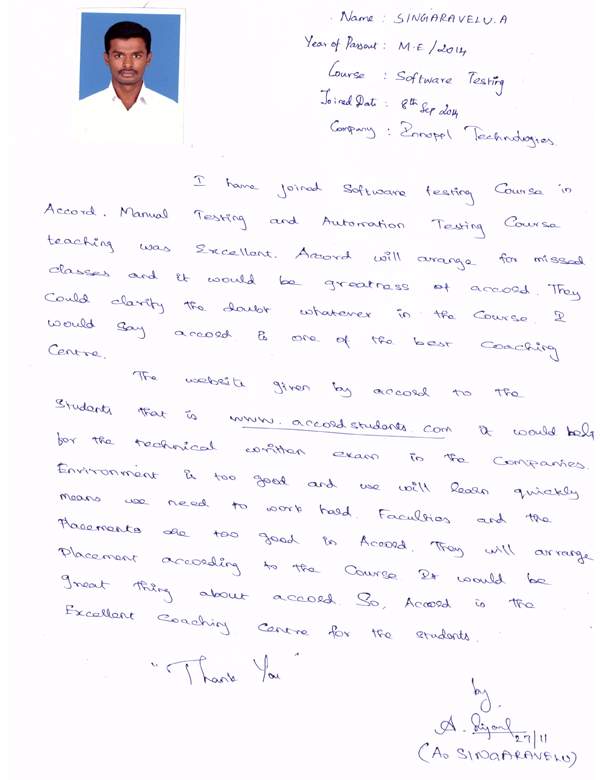 Name : SINGARAVELU.A
Year of Passout : M.E/2014
Course : Software Testing
Joined Date : 8th Sep 2014
Company : Ennoppl Technologies
I have joined Software testing Course in
Accord. Manual Testing and Automation Testing Course
teaching was Excellent. Accord will arrange for missed
classes and it would be greatness of accord. They
Could clarify the doubt whatever in the Course. I
would Say accord is one of the best Coaching
Centre.
The website given by accord to the
Students that is www.accordstudents.com it would help
for the technical written exam in the Companies.
Environment is too good and we will learn quickly
means we need to work hard. Faculties and the
Placements are too good in Accord. They will arrange
Placement according to the Course It would be
great thing about accord. So, Accord is the
Excellent Coaching Centre for the students.
"Thank You"
by
A. 27/11
(A. SINGARAVELU)